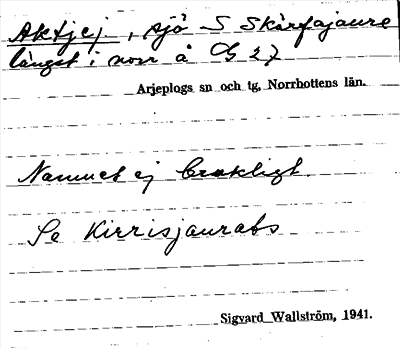 Aktjej, sjö S Skärfajaure
längst i norr å G 27
Arjeplogs sn och tg, Norrbottens län.
Namnet ej brukligt
Se Kirrisjaurats
Sigvard Wallström, 1941.